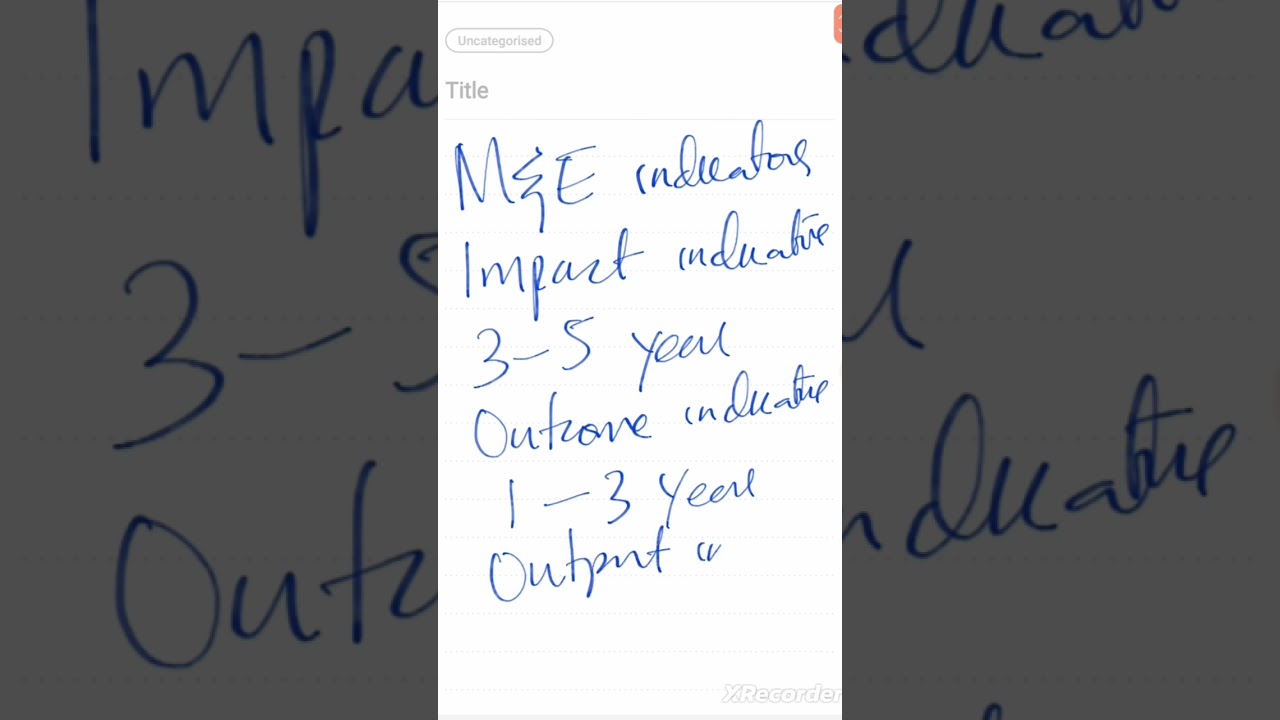 Uncategorised
Title
M&E indicators
Impact indicative
3-5 year
Outcome indicative
1-3 Year
Output in
XRecorder